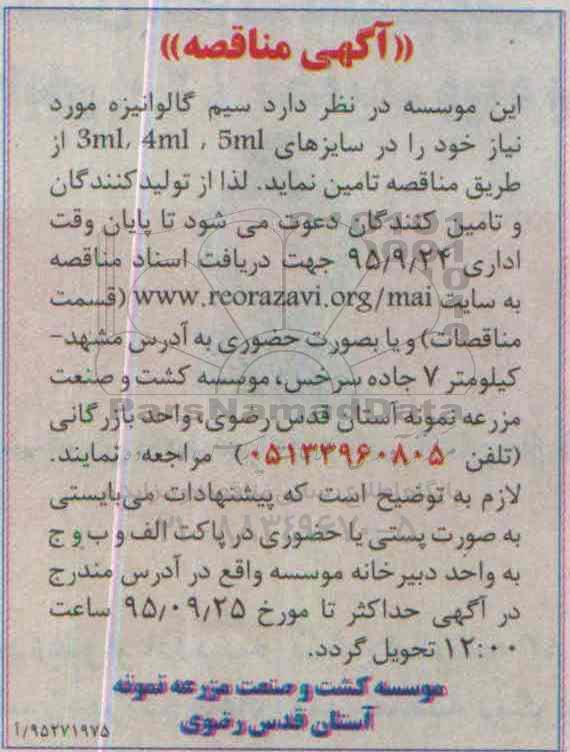 «آگهی مناقصه»
این موسسه در نظر دارد سیم گالوانیزه مورد
نیاز خود را در سایزهای 3ml, 4ml , 5ml از
طریق مناقصه تامین نماید. لذا از تولیدکنندگان
و تامین کنندگان دعوت می شود تا پایان وقت
اداری ۹۵/۹/۲۴ جهت دریافت اسناد مناقصه
به سایت www.reorazavi.org/mai (قسمت
مناقصات) و یا بصورت حضوری به آدرس مشهد-
کیلومتر ۷ جاده سرخس، موسسه کشت و صنعت
مزرعه نمونه آستان قدس رضوی، واحد بازرگانی
(تلفن ۰۵۱۳۳۹۶۰۸۰۵) مراجعه نمایند.
لازم به توضیح است که پیشنهادات می‌بایستی
به صورت پستی یا حضوری در پاکت الف و ب و ج
به واحد دبیرخانه موسسه واقع در آدرس مندرج
در آگهی حداکثر تا مورخ ۹۵/۰۹/۲۵ ساعت
۱۲:۰۰ تحویل گردد.
موسسه کشت و صنعت مزرعه نمونه
آستان قدس رضوی
۹۵۲۷۱۹۷۵/آ
ParsNamadData